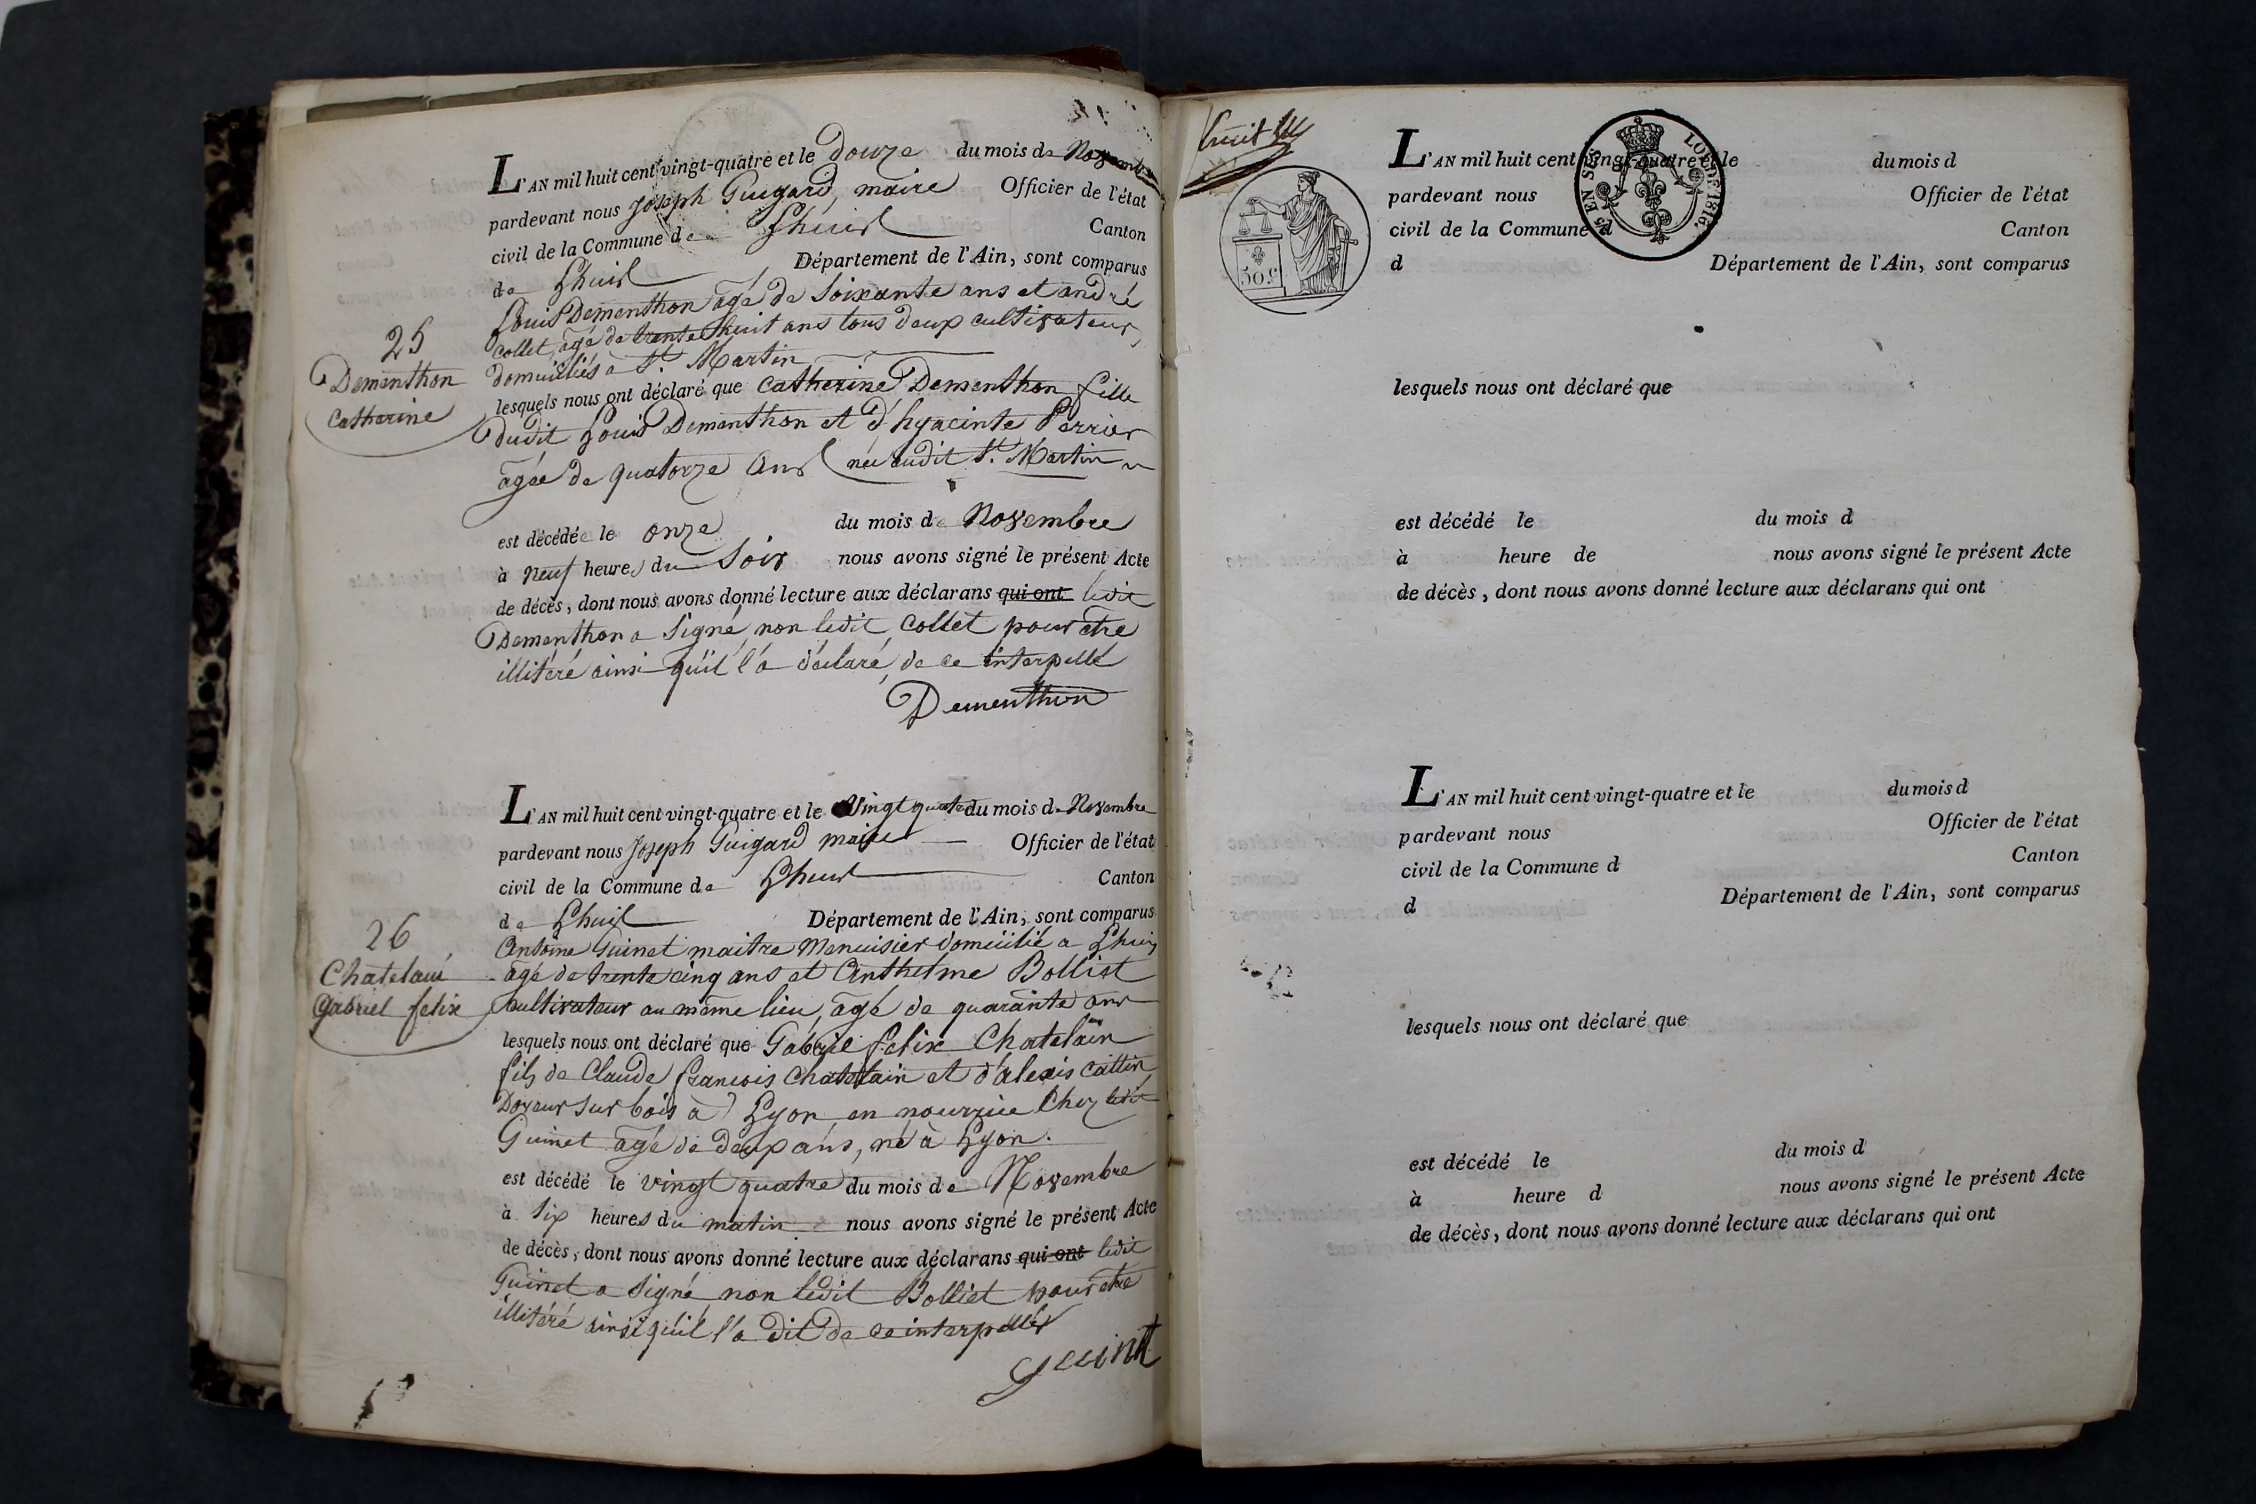 L'AN mil huit cent vingt-quatre et le douze du mois de Novembre
pardevant nous Joseph Guigard, maire Officier de l'état
civil de la Commune de Lhuis Canton
de Lhuis Département de l'Ain, sont comparus
Louis Dementhon agé de Soixante ans et andré
collet, agé de trente huit ans tous deux cultivateurs,
domiciliés à St. Martin
25
Dementhon
Catherine
lesquels nous ont déclaré que Catherine Dementhon fille
dudit Louis Dementhon et d'hyacinte Perrier
agée de quatorze ans née audit St. Martin
est décédée le onze du mois de Novembre
à neuf heures du Soir nous avons signé le présent Acte
de décès, dont nous avons donné lecture aux déclarans qui ont ledit
Dementhon a Signé, non ledit Collet pour etre
illitéré ainsi qu'il l'a déclaré, de ce interpellé
Dementhon
L'AN mil huit cent vingt-quatre et le Vingt quatre du mois de Novembre
pardevant nous Joseph Guigard maire Officier de l'état
civil de la Commune de Lhuis Canton
de Lhuis Département de l'Ain, sont comparus
Antoine Guinet maitre Menuisier domicilié a Lhuis
agé de trente cinq ans et Anthelme Bolliet
cultivateur au même lieu, agé de quarante ans
26
Chatelain
Gabriel felix
lesquels nous ont déclaré que Gabriel felix Chatelain
fils de Claude francois Chatelain et d'alexis Cattin
sur bois à Lyon en nourrice Chez ledit
Guinet agé de deux ans, né à Lyon.
est décédé le vingt quatre du mois de Novembre
à Six heures du matin nous avons signé le présent Acte
de décès, dont nous avons donné lecture aux déclarans qui ont ledit
Guinet a Signé non ledit Bolliet pour etre
illitéré ainsi qu'il l'a dit de ce interpellé
Guinet
huit
50 c.
EN SUS LOI DE 1816.
L'AN mil huit cent vingt-quatre et le du mois d
pardevant nous Officier de l'état
civil de la Commune d Canton
d Département de l'Ain, sont comparus
lesquels nous ont déclaré que
est décédé le du mois d
à heure de nous avons signé le présent Acte
de décès, dont nous avons donné lecture aux déclarans qui ont
L'AN mil huit cent vingt-quatre et le du mois d
pardevant nous Officier de l'état
civil de la Commune d Canton
d Département de l'Ain, sont comparus
lesquels nous ont déclaré que
est décédé le du mois d
à heure d nous avons signé le présent Acte
de décès, dont nous avons donné lecture aux déclarans qui ont